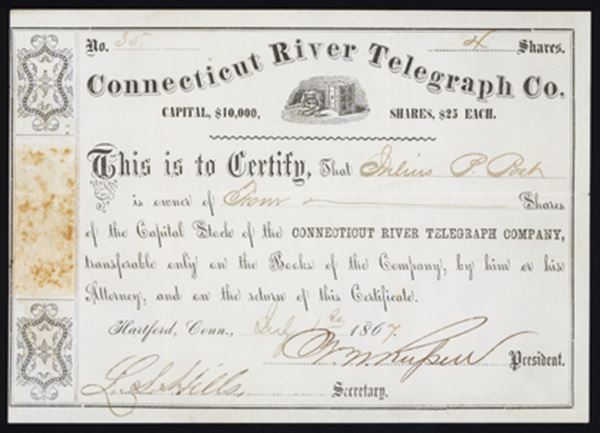 No. 35. 4 Shares.
Connecticut River Telegraph Co.
CAPITAL, $10,000, SHARES, $25 EACH.
This is to Certify, That Julius P. Post
is owner of Four Shares
of the Capital Stock of the CONNECTICUT RIVER TELEGRAPH COMPANY,
transferable only on the Books of the Company, by him or his
Attorney, and on the return of this Certificate.
Hartford, Conn., July 1st 1867.
President.
L. S. Hills Secretary.